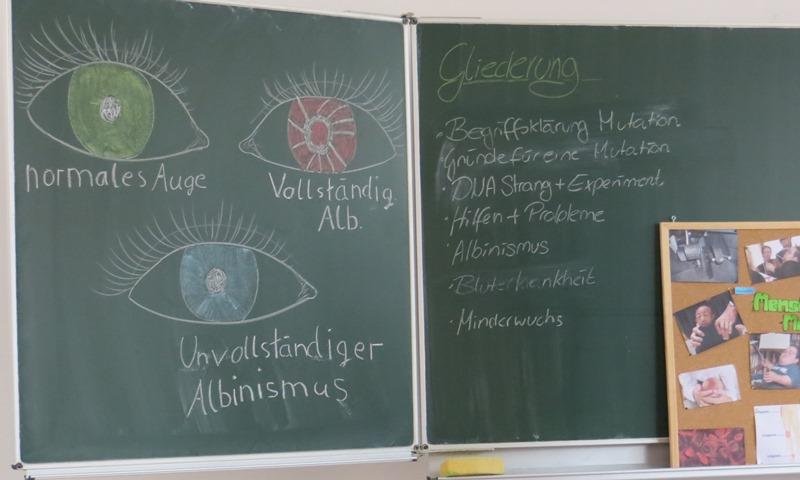 normales Auge
Vollständig.
Alb.
Unvollständiger
Albinismus
Gliederung
· Begriffsklärung Mutation
Gründe für eine Mutation
· DNA Strang + Experiment
· Hilfen + Probleme
· Albinismus
· Bluterkrankheit
· Minderwuchs